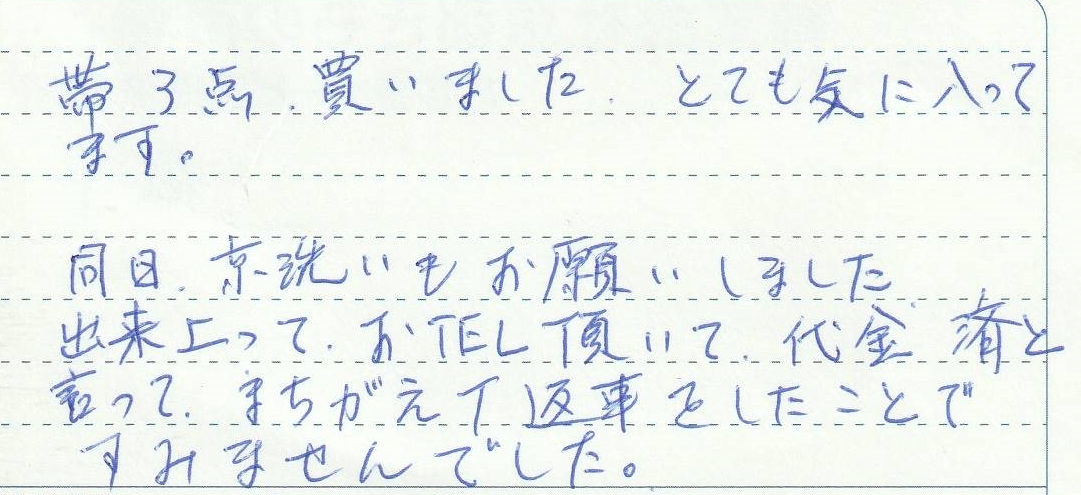 帯3点、買いました、とても気に入って
ます。
同日、京洗いもお願いしました
出来上って、お TEL 頂いて、代金 済と
言って、まちがえて返事をしたことで
すみませんでした。